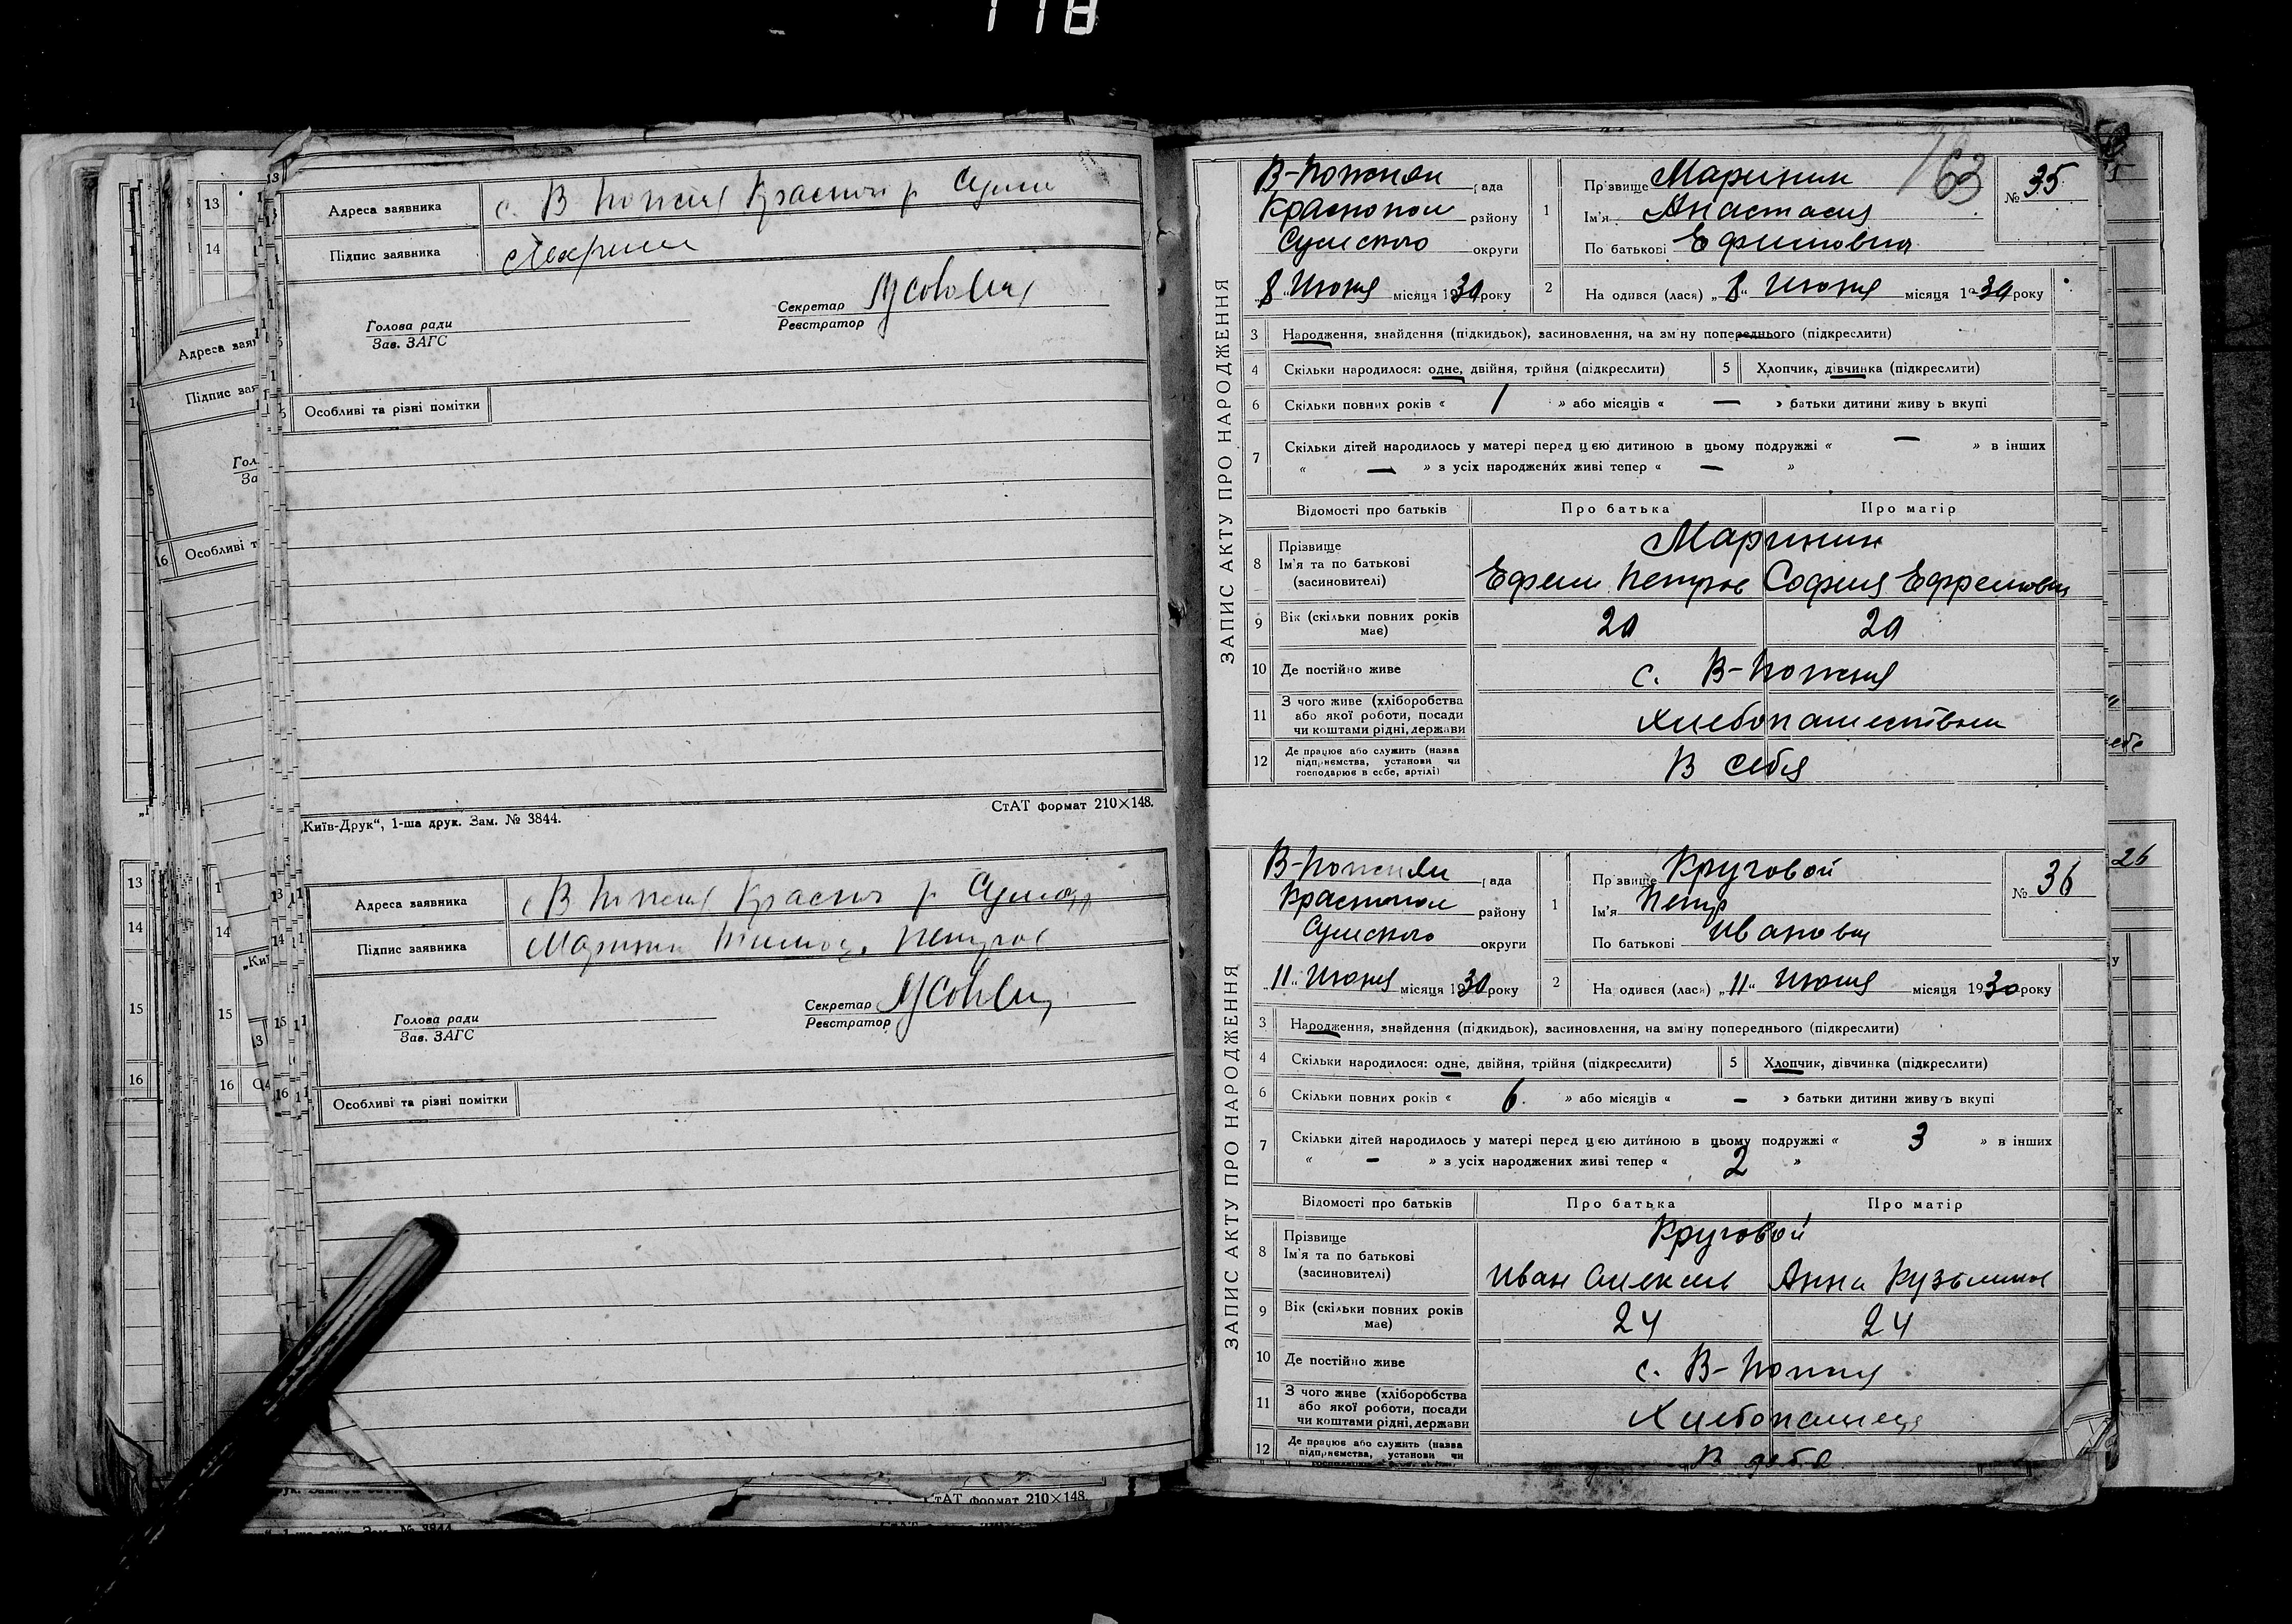 118
13
Адреса заявника с. В Пожня Красноп р Сумы
14
Підпис заявника
Секретар
Реєстратор
Голова ради
Зав. ЗАГС
Особливі та різні помітки
„Київ-Друк“, 1-ша друк. Зам. № 3844.
СтАТ формат 210×148.
Адреса заявника с В Пожня Краспоп р Сумод
Підпис заявника Маринин Петров
Секретар
Реєстратор
Голова ради
Зав. ЗАГС
Особливі та різні помітки
СтАТ формат 210×148.
63
ЗАПИС АКТУ ПРО НАРОДЖЕННЯ
В-Пожнян рада
Краснопол району
Сумского округи
„8“ Июня місяця 1930 року
1 Прізвище Маринин
Ім'я Анастасия
По батькові Ефимовна
№ 35
2 На одився (лася) „8“ Июня місяця 1930 року
3 Народження, знайдення (підкидьок), засиновлення, на зміну попереднього (підкреслити)
4 Скільки народилося: одне, двійня, трійня (підкреслити) 5 Хлопчик, дівчинка (підкреслити)
6 Скільки повних років « 1 » або місяців « — » батьки дитини живуь вкупі
7 Скільки дітей народилось у матері перед цією дитиною в цьому подружжі « — » в інших
« — » з усіх народжених живі тепер « — »
Відомості про батьків Про батька Про матір
8 Прізвище Маринин
Ім'я та по батькові
(засиновителі) Ефим Петров София Ефремовн
9 Вік (скільки повних років
має) 20 20
10 Де постійно живе с. В-Пожня
11 З чого живе (хліборобства
або якої роботи, посади
чи коштами рідні, держави Хлебопашеством
12 Де працює або служить (назва
підприємства, установи чи
господарює в себе, артілі) В себя
ЗАПИС АКТУ ПРО НАРОДЖЕННЯ
В-Пожнян рада
Краснопол району
Сумского округи
„11“ Июня місяця 1930 року
1 Прізвище Круговой
Ім'я Петр
По батькові Иванович
№ 36
2 На одився (лася) „11“ Июня місяця 1930 року
3 Народження, знайдення (підкидьок), засиновлення, на зміну попереднього (підкреслити)
4 Скільки народилося: одне, двійня, трійня (підкреслити) 5 Хлопчик, дівчинка (підкреслити)
6 Скільки повних років « 6 » або місяців « — » батьки дитини живуть вкупі
7 Скільки дітей народилось у матері перед цією дитиною в цьому подружжі « 3 » в інших
« — » з усіх народжених живі тепер « 2 »
Відомості про батьків Про батька Про матір
8 Прізвище Круговой
Ім'я та по батькові
(засиновителі) Иван Алексеев Анна Кузьминов
9 Вік (скільки повних років
має) 24 24
10 Де постійно живе с. В-Пожня
11 З чого живе (хліборобства
або якої роботи, посади
чи коштами рідні, держави Хлебопашец
12 Де працює або служить (назва
підприємства, установи чи
В себе